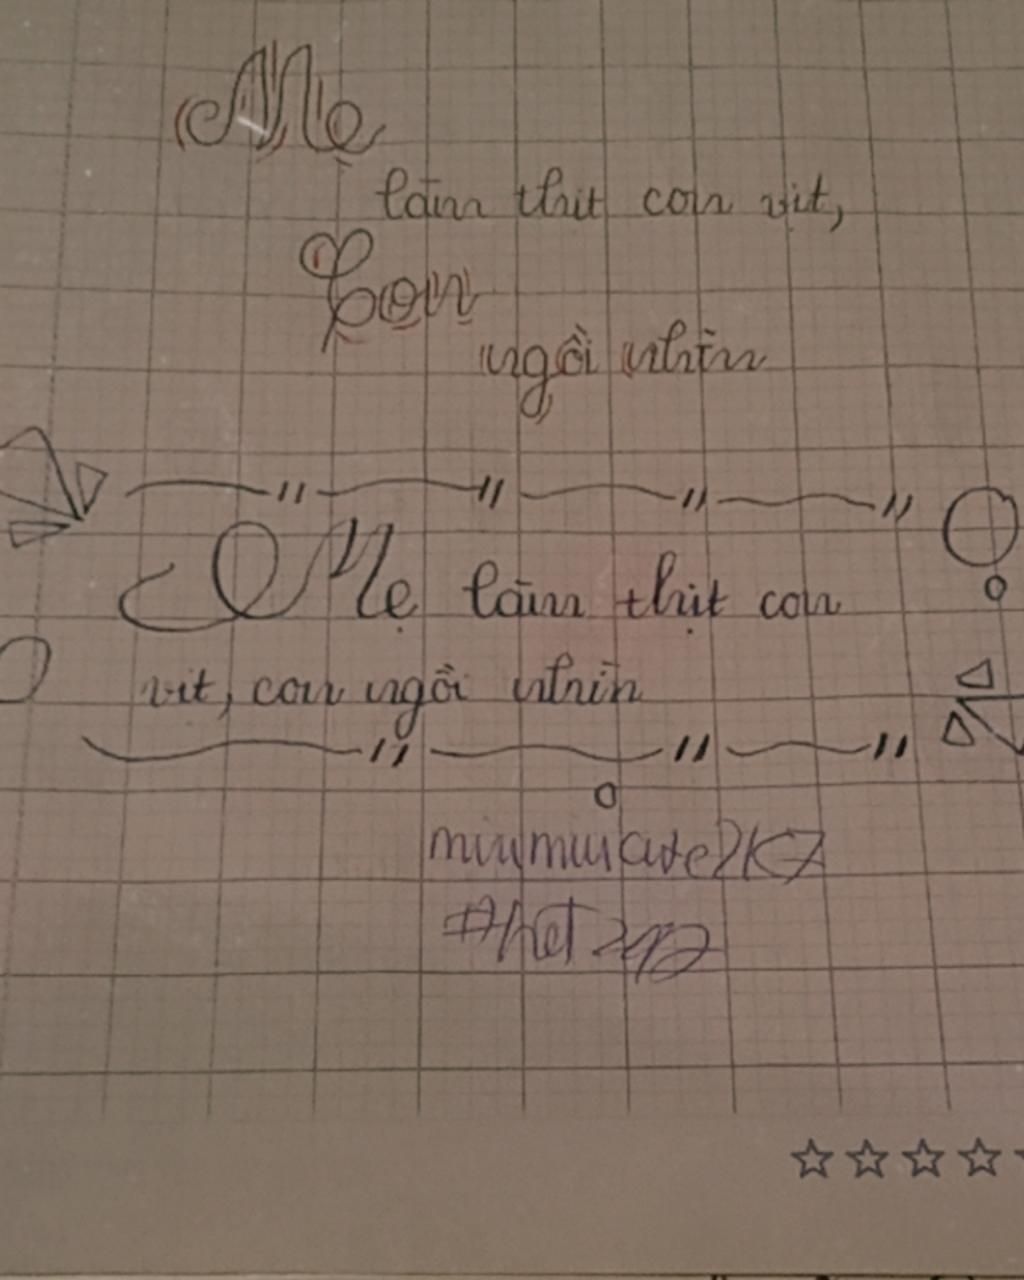 Mẹ
làm thịt con vịt,
Con
ngồi nhìn
Mẹ làm thịt con
vịt, con ngồi nhìn